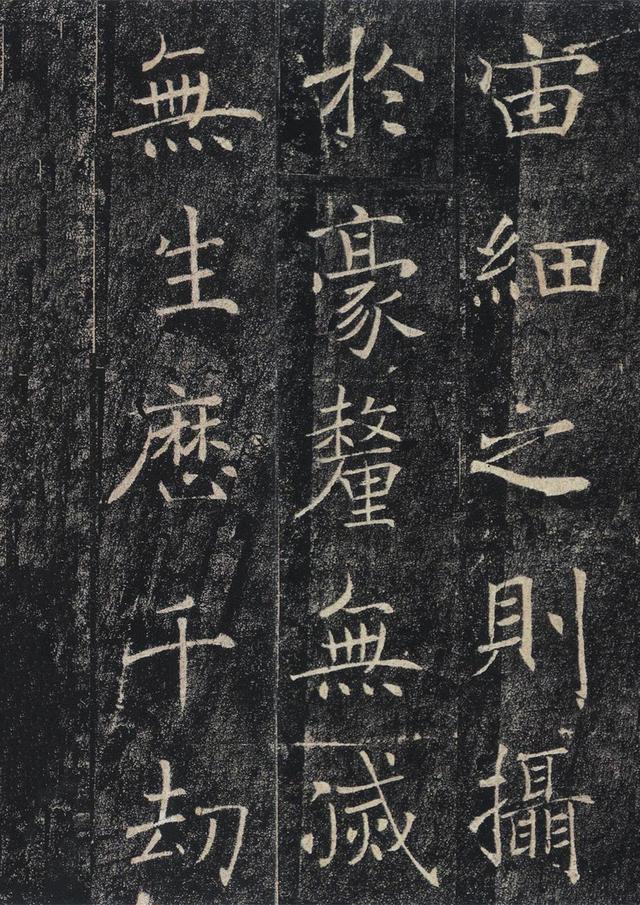 宙細之則攝
於豪釐無滅
無生歷千劫